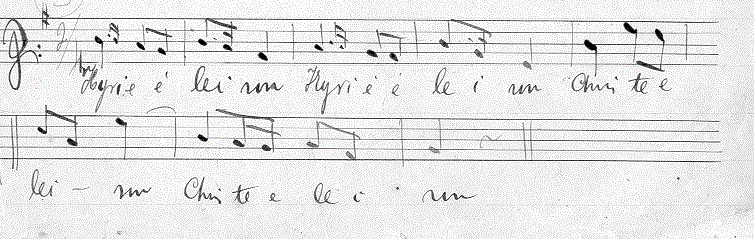 Kyrie é lei son Kyri é é le i son Chris te e
lei - son Chris te e le i son